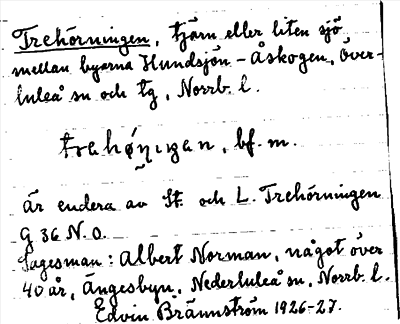 Trehörningen, tjärn eller liten sjö
mellan byarna Hundsjön - Åskogen, Över-
luleå sn och tg, Norrb. l.
bf. m.
är endera av St. och L. Trehörningen
G 36 N.O.
Sagesman: Albert Norman, något över
40 år, Ängesbyn, Nederluleå sn, Norrb. l.
Edvin Brännström 1926-27.